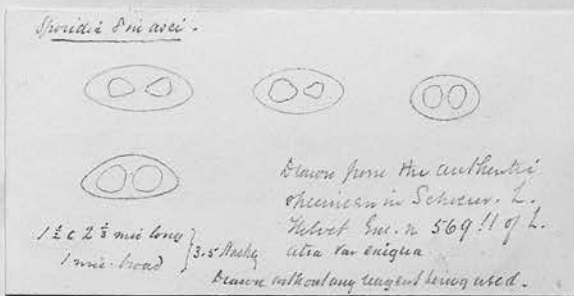 Sporidia 8 in asci.
Drawn from the authentic
specimen in Schaer. L.
Helvet. Exs. n 569!! of L.
atra var exigua
1 ½ c 2 ⅓ mic long
1 mic. broad
3.5 Hartn
Drawn without any reagent being used.